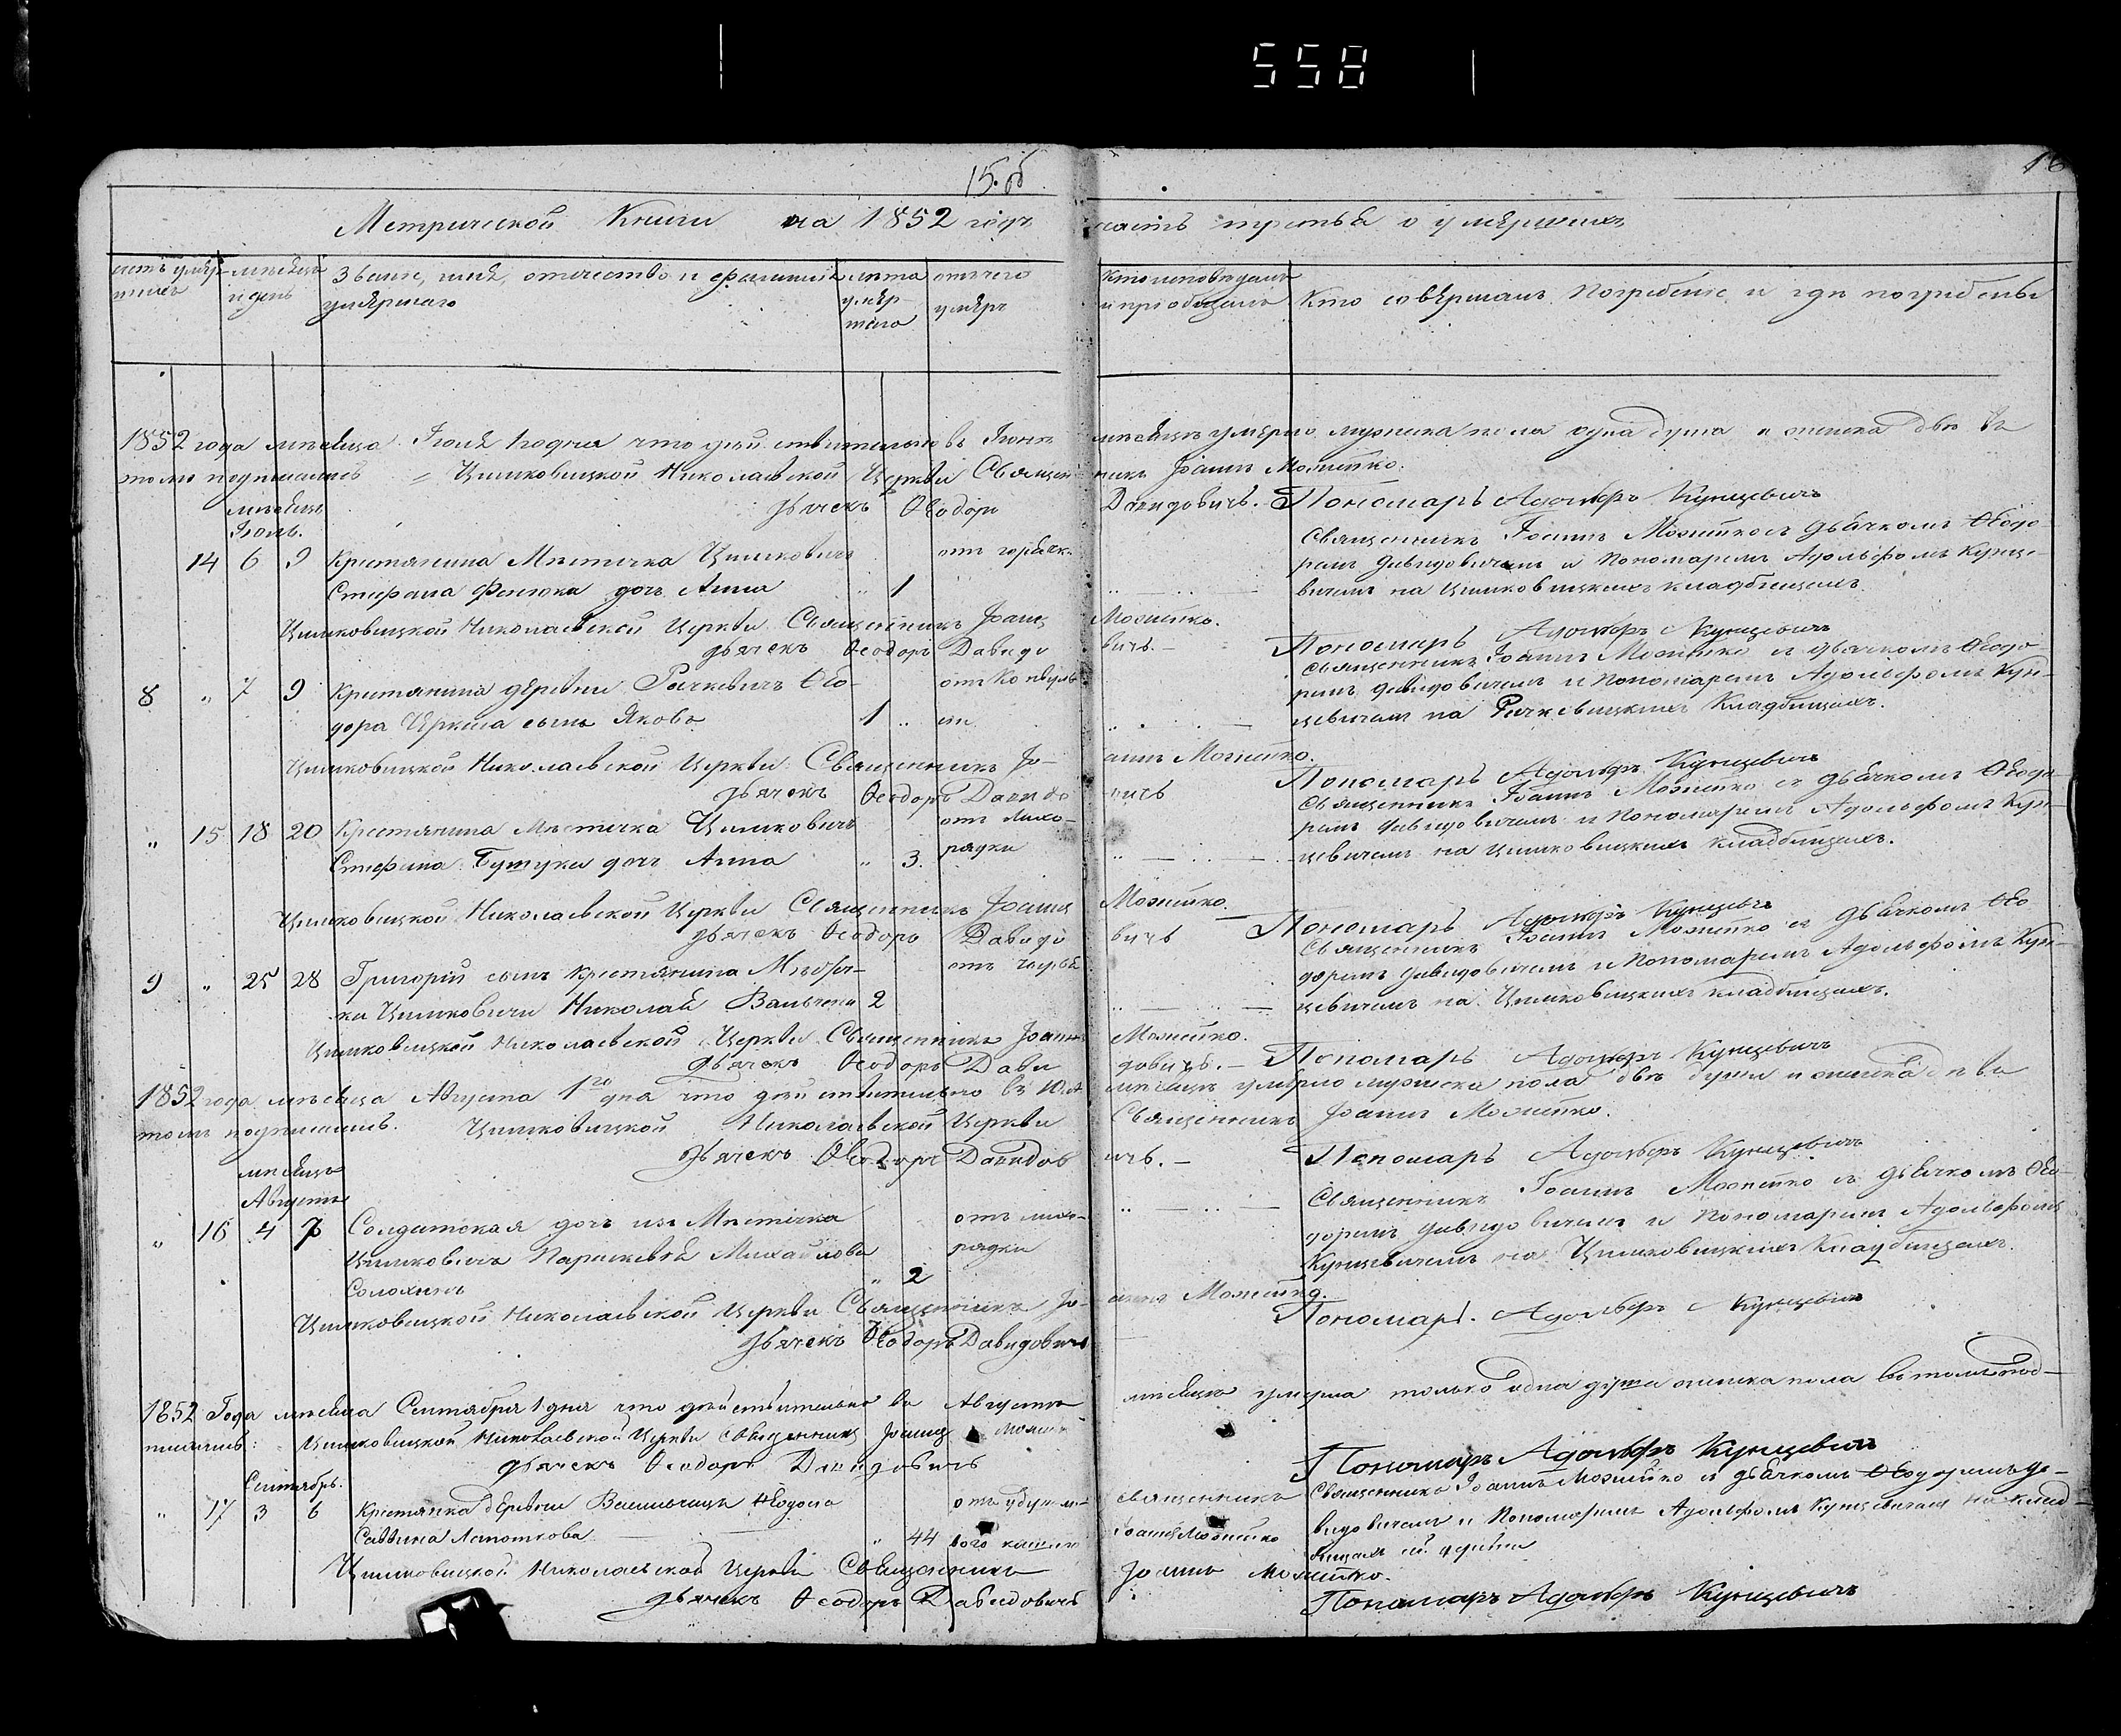 558
15. об
16
Метрической Книги на 1852 годъ часть третья о умершихъ
мѣсяцъ и день
Званіе, имя, отечество и фамилія умершаго
лѣта умершаго
отъ чего умеръ
Кто исповѣдалъ и пріобщалъ
Кто совершалъ Погребеніе и гдѣ погребены
1852 года мѣсяца Іюля 1 го дня что дѣйствительно въ Іюнѣ мѣсяцѣ умерло мужеска пола одна душа и женска двѣ въ
томъ подписались Цимковицкой Николаевской Церкви Священникъ Іоаннъ Можейко.
дьячекъ Ѳеодоръ Давидовичъ. Пономарь Адольфъ Кунцевичъ
мѣсяцъ Іюль.
14 6 9 Крестянина Мѣстечка Цимковичъ отъ горячк.
Стефана Фенюка дочь Анна " 1
Священникъ Іоаннъ Можейко съ дьячкомъ Ѳеодо-
ромъ Давидовичемъ и Пономаремъ Адольфомъ Кунце-
вичемъ на Цимковицкихъ кладбищахъ.
Цимковицкой Николаевской Церкви Священникъ Іоаннъ Можейко.
дьячекъ Ѳеодоръ Давидовичъ. Пономарь Адольфъ Кунцевичъ
8 " 7 9 Крестянина деревни Рачкевичъ Ѳео-
дора сынъ Яковъ 1 "
Священникъ Іоаннъ Можейко съ дьячкомъ Ѳеодо-
ромъ Давидовичемъ и Пономаремъ Адольфомъ Кун-
цевичемъ на Рачковицкихъ Кладбищахъ.
Цимковицкой Николаевской Церкви Священникъ Іоаннъ Можейко.
дьячекъ Ѳеодоръ Давидовичъ Пономарь Адольфъ Кунцевичъ
" 15 18 20 Крестянина Мѣстечка Цимковичъ отъ лихо-
Стефана Бутуки дочь Анна " 3. радки
Священникъ Іоаннъ Можейко съ дьячкомъ Ѳеодо-
ромъ Давидовичемъ и Пономаремъ Адольфомъ Кун-
цевичемъ на Цимковицкихъ кладбищахъ.
Цимковицкой Николаевской Церкви Священникъ Іоаннъ Можейко.
дьячекъ Ѳеодоръ Давидовичъ Пономарь Адольфъ Кунцевичъ
9 " 25 28 Григорій сынъ Крестянина
Цимковичи Николай 2
Священникъ Іоаннъ Можейко съ дьячкомъ Ѳео
доромъ Давидовичемъ и Пономаремъ Адольфомъ Кун-
цевичемъ на Цимковицкихъ кладбищахъ.
Цимковицкой Николаевской Церкви Священникъ Іоаннъ Можейко.
дьячекъ Ѳеодоръ Давидовичъ. – Пономарь Адольфъ Кунцевичъ
1852 года мѣсяца Августа 1го дня что дѣйствительно въ Юлѣ мѣсяцѣ умерло мужеска пола двѣ души и женска двѣ въ
томъ подписались. Цимковицкой Николаевской Церкви Священникъ Іоаннъ Можейко.
дьячекъ Ѳеодоръ Давидовичъ. – Пономарь Адольфъ Кунцевичъ
мѣсяцъ Августъ
" 16 4 7 Солдатская дочь изъ Мѣстечка отъ лихо-
Цимковичъ Параскевѣя Михайлова радки
" 2
Священникъ Іоаннъ Можейко съ дьячкомъ Ѳео-
доромъ Давидовичемъ и Пономаремъ Адольфомъ
Кунцевичемъ на Цимковицкихъ Кладбищахъ.
Цимковицкой Николаевской Церкви Священникъ Іоаннъ Можейко.
дьячекъ Ѳеодоръ Давидовичъ Пономарь. Адольфъ Кунцевичъ
1852 Года мѣсяца Сентября 1 дня что дѣйствительно въ Августѣ мѣсяцѣ умерла только одна душа женска пола въ томъ под-
писались: Цимковицкой Николаевской Церкви Священникъ Іоаннъ
дьячекъ Ѳеодоръ Давидовичъ Пономарь Адольфъ Кунцевичъ
Сентябрь.
" 17 3 6 Крестянка деревни Ѳеодося
Саввина " 44 кашлю
Священникъ Іоаннъ Можейко
Священникъ Іоаннъ Можейко съ дьячкомъ Ѳеодоромъ Да-
видовичемъ и Пономаремъ Адольфомъ Кунцевичемъ на клад-
Цимковицкой Николаевской Церкви Священникъ Іоаннъ Можейко.
дьячекъ Ѳеодоръ Давидовичъ Пономарь Адольфъ Кунцевичъ